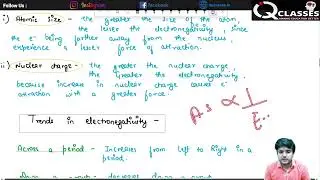 Follow Us :
Q CLASSES
i) Atomic Size - the greater the size of the atom,
the lesser the electronegativity, since
the e⁻ being farther away from the nucleus,
experience a lesser force of attraction.
ii) Nuclear charge - the greater the nuclear charge,
the Greater the electronegativity.
because increase in nuclear charge causes e⁻
attraction with a greater force.
A.S ∝ 1/E
Trends in electronegativity -
Across a period - Increases from left to Right in a
period.